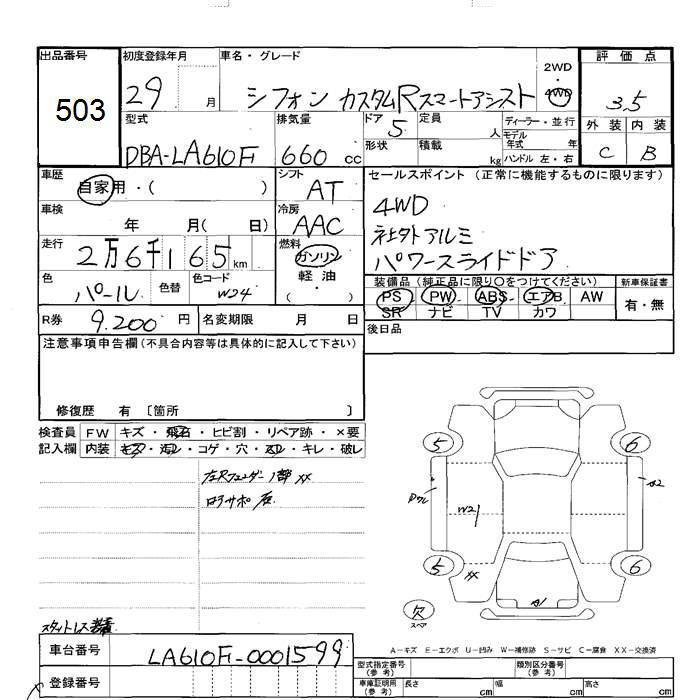 出品番号 初度登録年月 車名・グレード 評価点
503
29 月 シフォン カスタムRスマートアシスト 2WD・4WD 3.5
型式 排気量 ドア 定員 ディーラー・並行 外装 内装
DBA-LA610F 660 cc 5 人 モデル年式 年 C B
形状 積載 kg ハンドル 左・右
車歴 自家用・( ) シフト AT セールスポイント (正常に機能するものに限ります)
車検 年 月( 日) 冷房 AAC 4WD
社外アルミ
走行 2万6千165km 燃料 ガソリン 軽油 ( ) パワースライドドア
色 パール 色替 色コード W24
装備品 (純正品に限り〇をつけてください) 新車保証書
PS PW ABS エアB AW 有・無
SR ナビ TV カワ
R券 9.200 円 名変期限 月 日 後日品
注意事項申告欄 (不具合内容等は具体的に記入して下さい)
修復歴 有 〔箇所 〕
検査員 FW キズ・飛石・ヒビ割・リペア跡・×要
記入欄 内装 キズ・汚れ・コゲ・穴・スレ・キレ・破レ
左Rフェンダー1部 XX
ロラサポ
5 6
W21 A2
5 6
XX
A1
欠
スペア
スタットレス装着
A-キズ E-エクボ U-凹み W-補修跡 S-サビ C-腐食 XX-交換済
車台番号 LA610F-0001599
型式指定番号 (参考) 類別区分番号 (参考)
登録番号 車庫証明用 (参考) 長さ cm 幅 cm 高さ cm